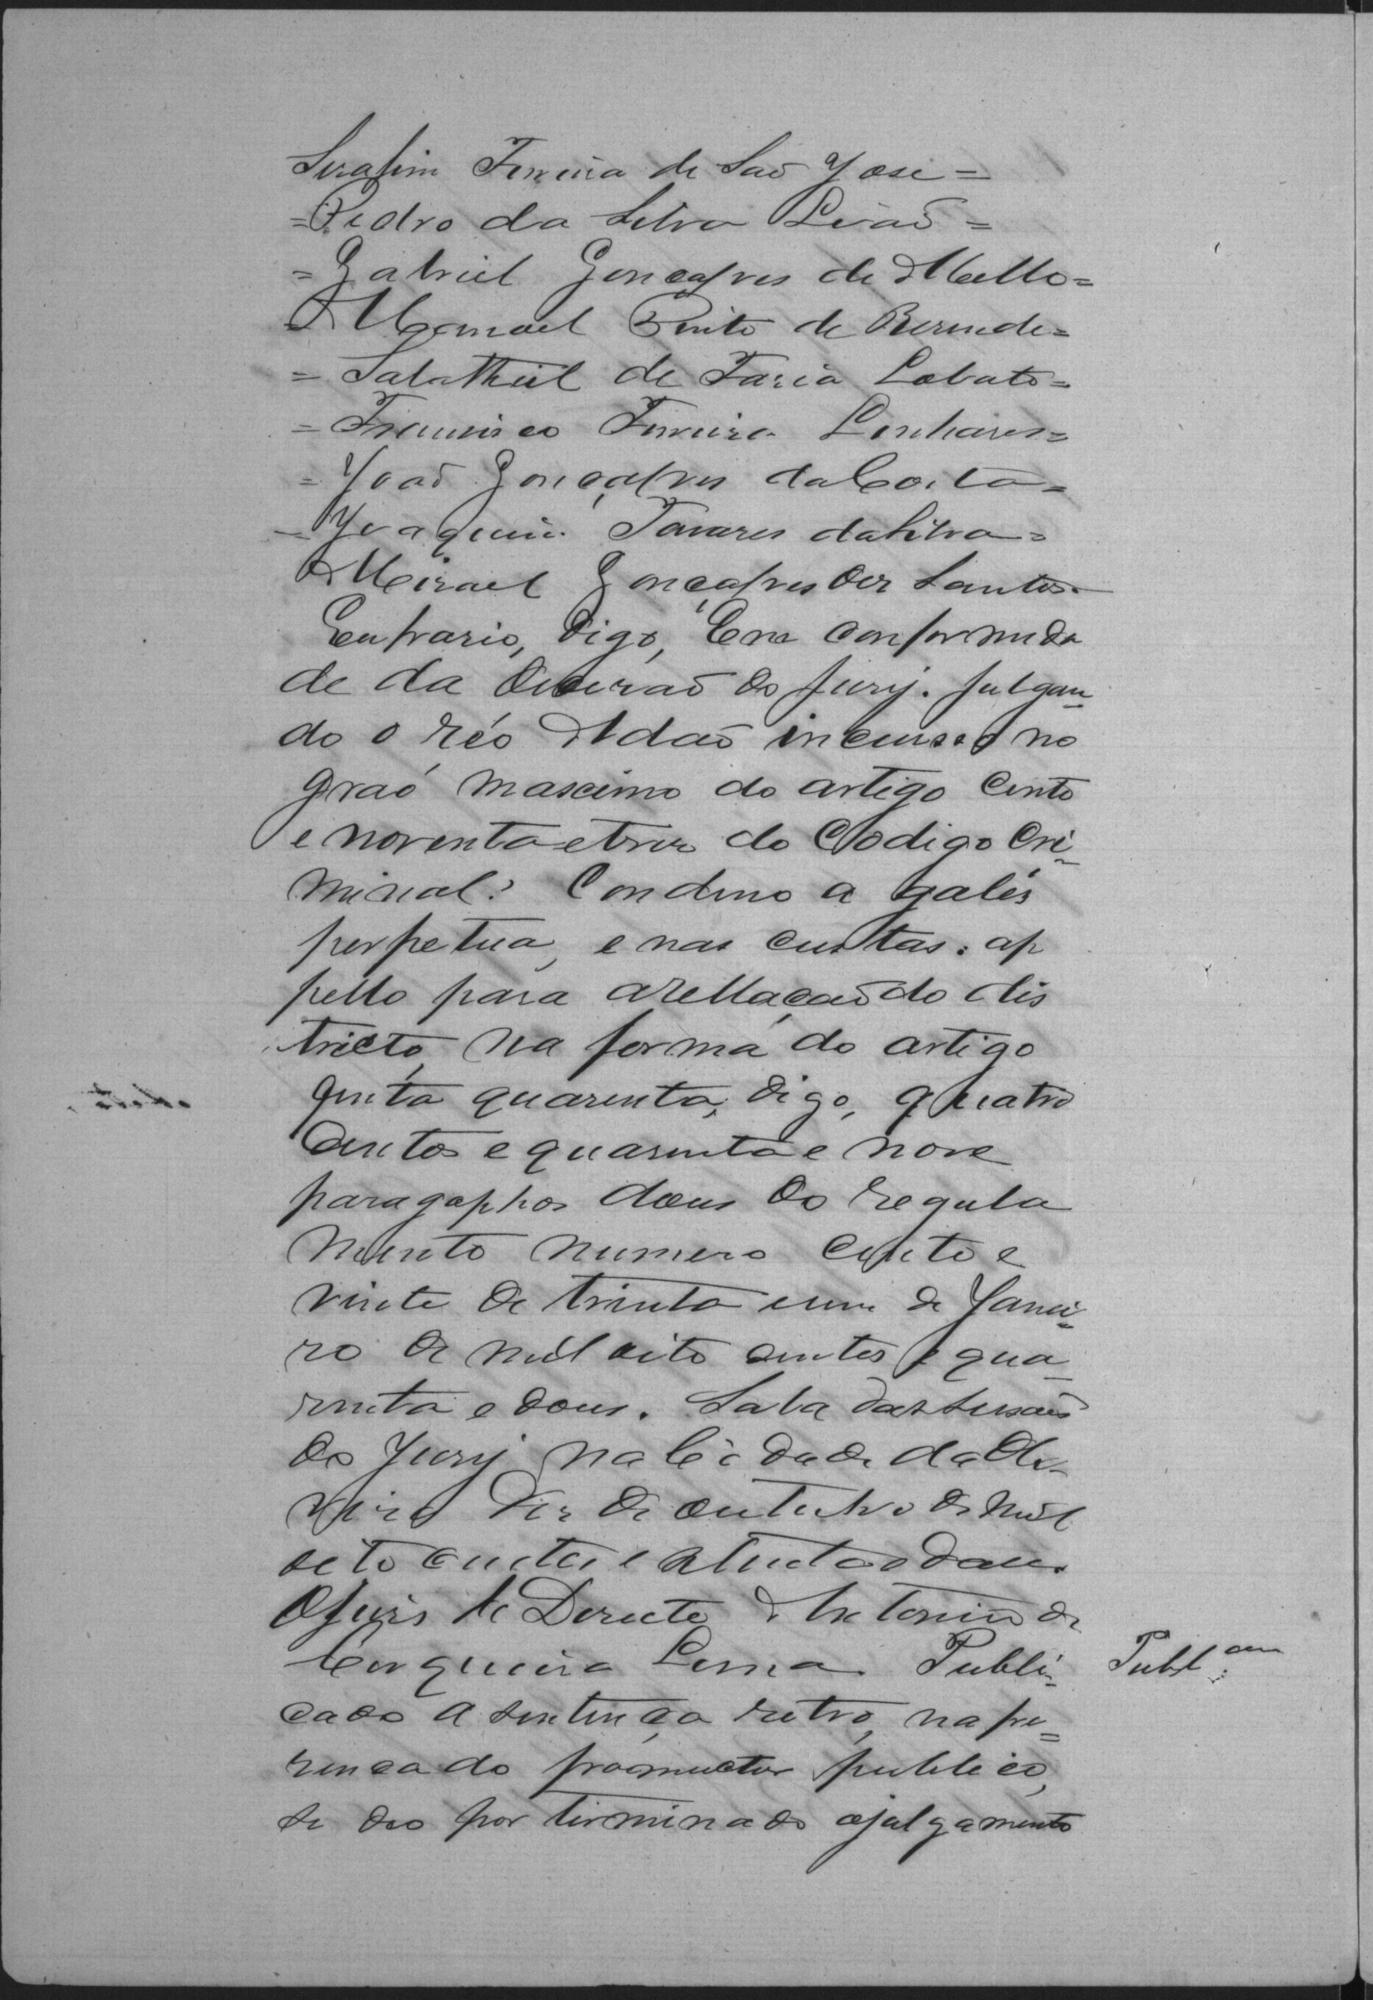 Serafim Ferreira de Saõ Jose =
= Pedro da Silva Leaõ =
= Gabriel Gonçalves de Mello =
= Manoel Pinto de Resende =
= Salathiel de Faria Lobato =
= Francisco Ferreira Linhares =
= Joaõ Gonçalves da Costa =
= Joaquim Tavares da Silva =
Misael Gonçalves dos Santos.
Eufrasio, digo, Em conformida
de da decisaõ do jury. julgan=
do o réo Adaõ incurso no
graó maximo do artigo cento
e noventa e tres do Codigo Cri=
minal: Condeno a galés
perpetua, e nas custas: ap
pello para a rellaçaõ do dis
tricto, na forma do artigo
quenta quarenta, digo, quatro
centos e quarenta e nove
paragaphos dous do regula
mento numero cento e
vinte de trinta e um de Janei=
ro de mil oito centos e qua_
renta e dous. Sala das sessoẽs
do Jury na Cidade da Oli=
veira dez de outubro de mil
oito centos e setenta e dous.
O juis de Direito Antonio de
Cerqueira Lima. Publi= Publ.am
cada a sentença retro, na pre=
zença do promuctor publico,
se deo por terminado o julgamento